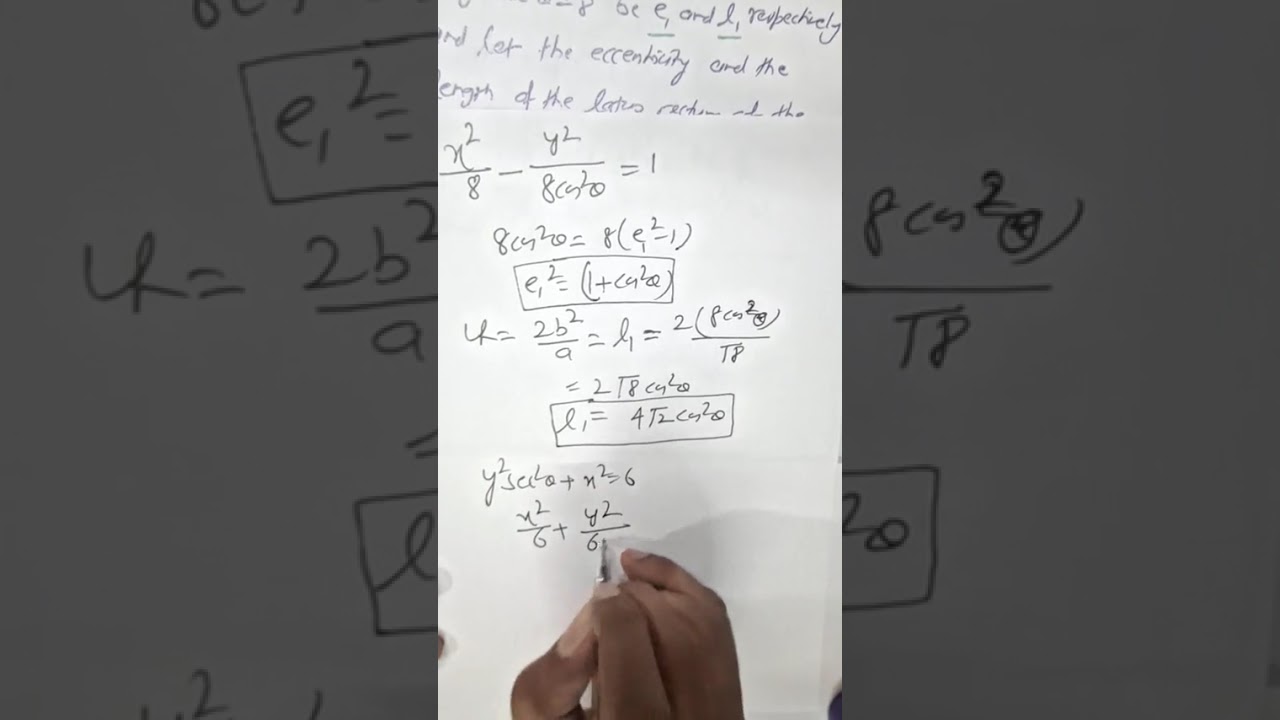 =8 be e₁ and l₁ respectively
and let the eccentricity and the
length of the latus rectum of the
x²/8 - y²/8cos²θ = 1
8cos²θ = 8(e₁²-1)
e₁² = (1+cos²θ)
LR = 2b²/a = l₁ = 2(8cos²θ)/√8
= 2√8cos²θ
l₁ = 4√2cos²θ
y²sec²θ + x² = 6
x²/6 + y²/6